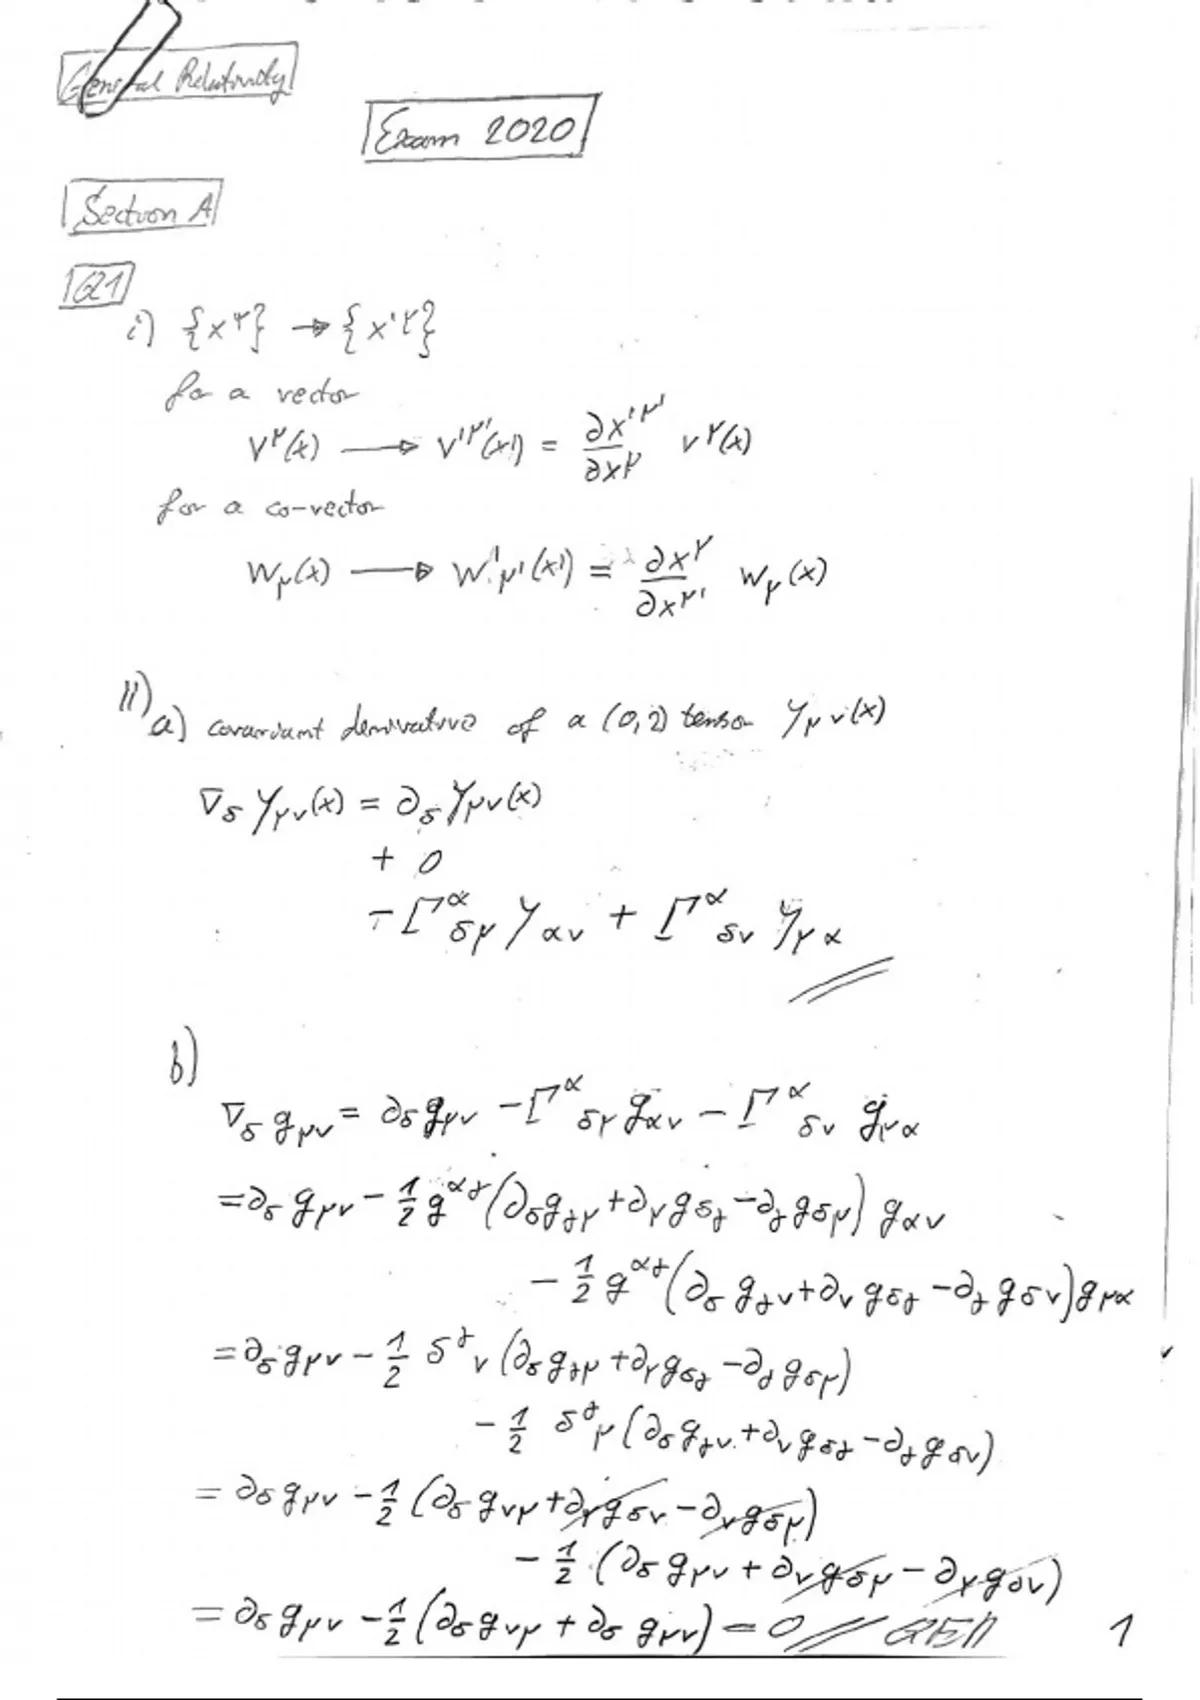 General Relativity
Exam 2020
Section A
Q1
i) {x^μ} → {x'^μ}
for a vector
V^μ(x) → V'^μ'(x') = ∂x'^μ'/∂x^μ V^μ(x)
for a co-vector
W_μ(x) → W'_μ'(x') = ∂x^μ/∂x^μ' W_μ(x)
II)
a) covariant derivative of a (0,2) tensor Y_μν(x)
∇_δ Y_μν(x) = ∂_δ Y_μν(x)
+ 0
- Γ^α_δμ Y_αν + Γ^α_δν Y_μα
b)
∇_δ g_μν = ∂_δ g_μν - Γ^α_δμ g_αν - Γ^α_δν g_μα
= ∂_δ g_μν - 1/2 g^αγ (∂_δ g_γμ + ∂_μ g_δγ - ∂_γ g_δμ) g_αν
- 1/2 g^αγ (∂_δ g_γν + ∂_ν g_δγ - ∂_γ g_δν) g_μα
= ∂_δ g_μν - 1/2 δ^γ_ν (∂_δ g_γμ + ∂_μ g_δγ - ∂_γ g_δμ)
- 1/2 δ^γ_μ (∂_δ g_γν + ∂_ν g_δγ - ∂_γ g_δν)
= ∂_δ g_μν - 1/2 (∂_δ g_νμ + ∂_μ g_δν - ∂_ν g_δμ)
- 1/2 (∂_δ g_μν + ∂_ν g_δμ - ∂_μ g_δν)
= ∂_δ g_μν - 1/2 (∂_δ g_νμ + ∂_δ g_μν) = 0 // QED
1